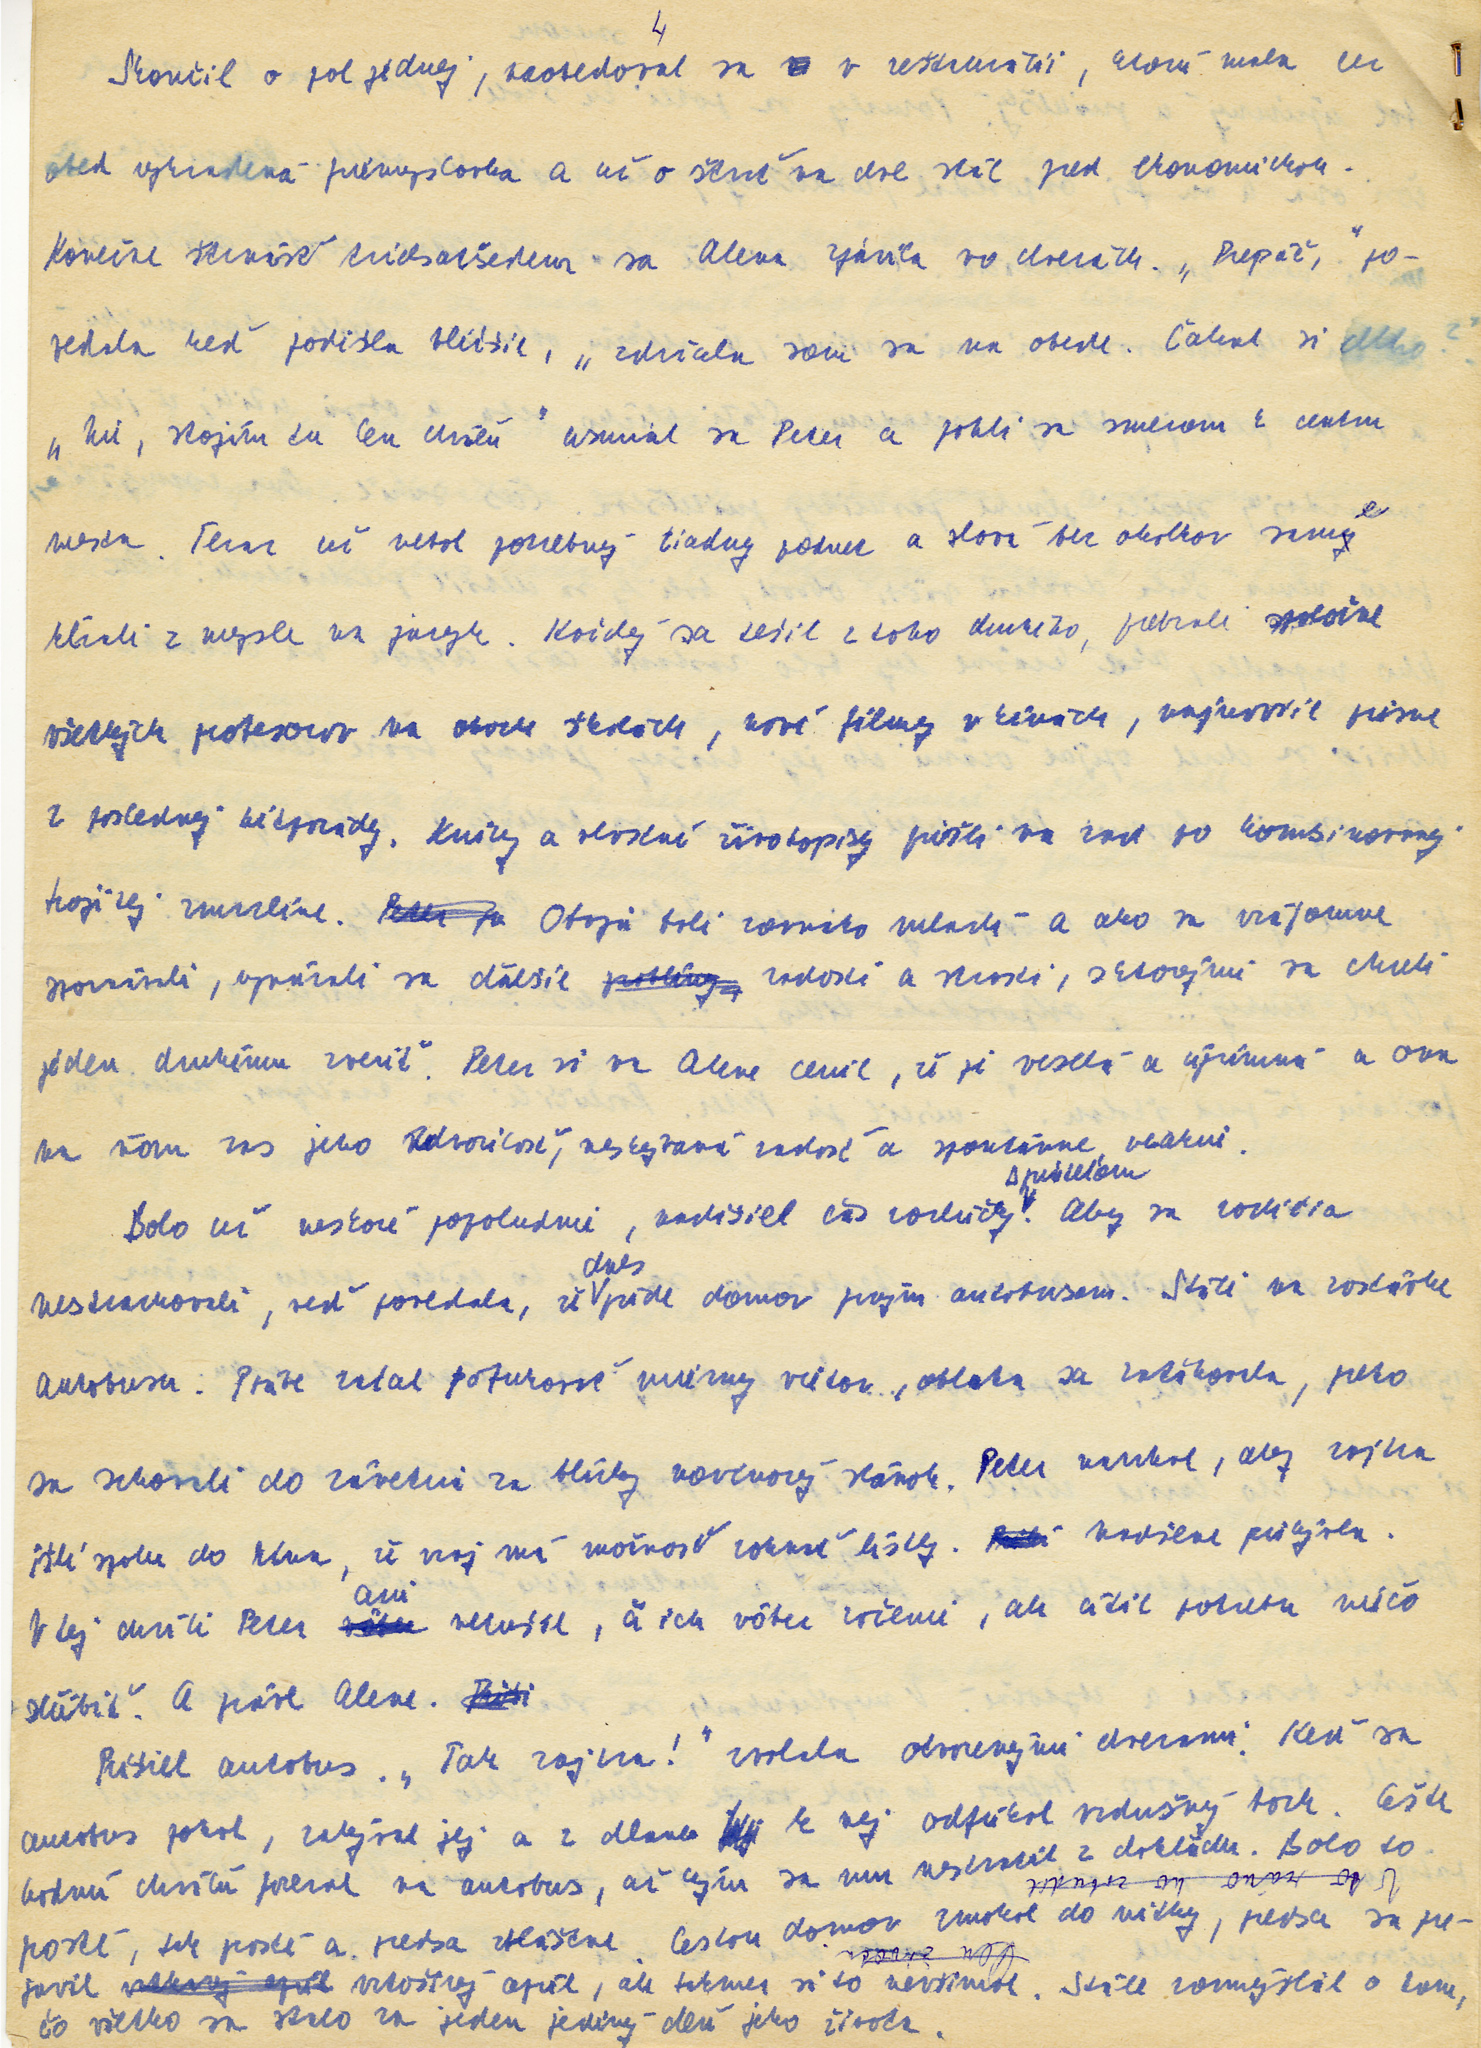 4
Skončil o pol jednej, naobedoval sa v reštaurácii, ktorú mala na
obed vyhradenú priemyslovka a už o štvrť na dve stál pred ekonomickou.
Konečne štrnásť tridsaťsedem sa Alena zjavila vo dverách. „Prepáč," po-
vedala keď podišla bližšie, „zdržala som sa na obede. Čakal si dlho?"
„Nie, stojím tu len chvíľu" usmial sa Peter a pohli sa smerom k centru
mesta. Teraz už nebol potrebný žiadny podnet a slová bez okolkov samy e
kĺzali z mysle na jazyk. Každý sa tešil z toho druhého, prebrali spoločne
všetkých profesorov na oboch školách, nové filmy v kinách, najnovšie piesne
z poslednej hitparády. Knihy a vlastné životopisy prišli na rad po kombinovanej
trojitej zmrzline. Peter sa Obaja boli rovnako mladí a ako sa vzájomne
spoznávali, vynárali sa ďalšie problémy, radosti a strasti, s ktorými sa chceli
jeden druhému zveriť. Peter si na Alene cenil, že je veselá a úprimná a ona
na ňom zas jeho zdvorilosť, neskrývanú radosť a spontánne
s priateľom
Bolo už neskoré popoludnie, nadišiel čas rozlúčky. Aby sa rodičia
dnes
nestrachovali, veď povedala, že príde domov prvým autobusom. Stáli na zastávke
autobusu. Práve začal pofukovať mierny vietor, obloha sa zaťahovala, preto
sa schovali do závetria za blízky novinový stánok. Peter navrhol, aby zajtra
išli spolu do kina, že vraj má možnosť zohnať lístky. Nadšene prijala.
ani
V tej chvíli Peter vôbec netušil, či ich vôbec zoženie, ale cítil potrebu niečo
sľúbiť. A práve Alene.
Prišiel autobus. „Tak zajtra!" zvolala otvorenými dverami. Keď sa
autobus pohol, zakýval jej a z dlane k nej odfúkol vzdušný bozk. Ešte
hodnú chvíľu pozeral na autobus, až kým sa mu nestratil z dohľadu. Bolo to
prosté, tak prosté a predsa zvláštne. Cestou domov zmokol do nitky, predsa sa pre-
javil vrtošivý apríl, ale takmer si to nevšimol. Stále rozmýšľal o tom,
čo všetko sa stalo za jeden jediný deň jeho života.